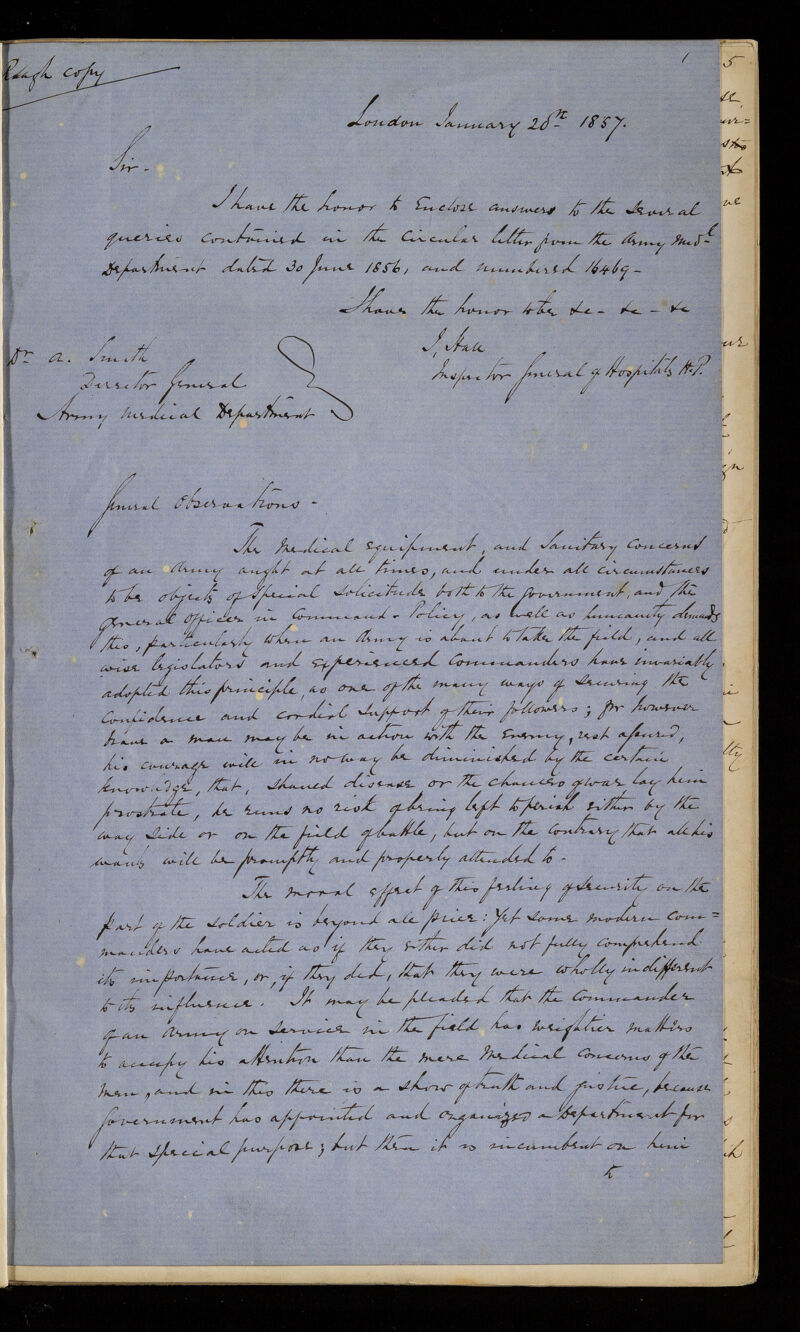 Rough copy
1
London January 28th 1857.
Sir -
I have the honor to Enclose answers to the several
queries contained in the Circular letter from the Army Medl
Department dated 30 June 1856, and numbered 16469 -
I have the honor to be &c - &c - &c
J, Hall
Inspector General of Hospitals H.P.
Dr A. Smith
Director General
Army Medical Department
General Observations -
The Medical equipment, and Sanitary Concerns
of an Army ought at all times, and under all circumstances
to be objects of special solicitude both to the government, and the
general officer in Command - Policy, as well as humanity demands
this, particularly when an Army is about to take the field, and all
wise legislators and experienced Commanders have invariably
adopted this principle, as one of the many ways of securing the
Confidence and cordial support of their followers; for however
brave a man may be in action with the Enemy, rest assured,
his courage will in no way be diminished by the certain
knowledge, that, should disease or the chances of war lay him
prostrate, he runs no risk of being left to perish either by the
way side or on the field of battle, but on the Contrary that all his
wants will be promptly and properly attended to -
The moral effect of this feeling of security on the
part of the soldier is beyond all price: Yet some modern Com=
manders have acted as if they either did not fully comprehend
its importance, or, if they did, that they were wholly indifferent
to its influence. It may be pleaded that the Commander
of an Army on service in the field has weightier matters
to occupy his attention than the mere Medical Concerns of the
men, and in this there is a show of truth and justice, because
Government has appointed and organized a Department for
that special purpose; but then it is incumbent on him
to